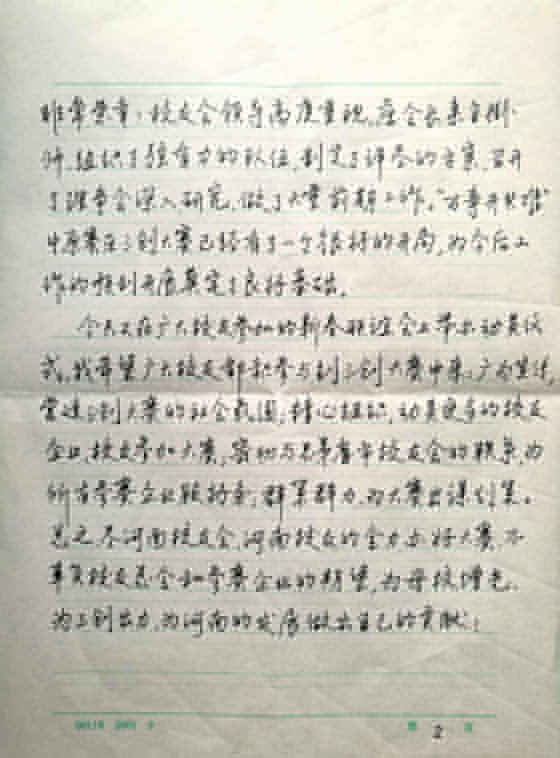 非常荣幸,校友会领导高度重视,座会长亲自挂
帅,组织了强有力的队伍,制定了详尽的方案,召开
了理事会深入研究,做了大量前期工作。"万事开头难"
中原赛区三创大赛已经有了一个很好的开局,为今后工
作的顺利开展奠定了良好基础。
今天又在广大校友参加的新春联谊会上举办动员仪
式,我希望广大校友都积参与到三创大赛中来,广为宣传,
营造三创大赛的社会氛围,精心组织,动员更多的校友
企业,校友参加大赛,密切与兄弟省市校友会的联系,为
所有参赛企业服务,群策群力,为大赛出谋划策。
总之尽河南校友会,河南校友的全力办好大赛,不
辜负校友总会和参赛企业的期望,为母校增色,
为三创出力,为河南的发展做出自己的贡献!
第 2 页